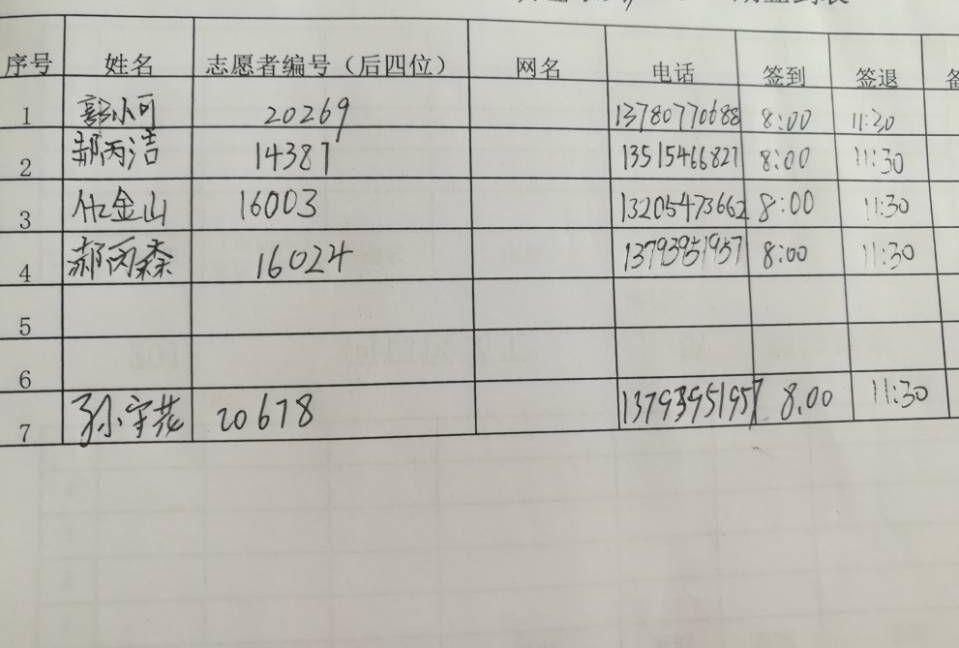 序号 姓名 志愿者编号（后四位） 网名 电话 签到 签退
1 郭小可 20269 13780770688 8:00 11:30
2 郝丙洁 14387 13515466827 8:00 11:30
3 仕金山 16003 13205473662 8:00 11:30
4 郝丙森 16024 13793951957 8:00 11:30
5
6
7 孙宇花 20678 13793951957 8.00 11:30